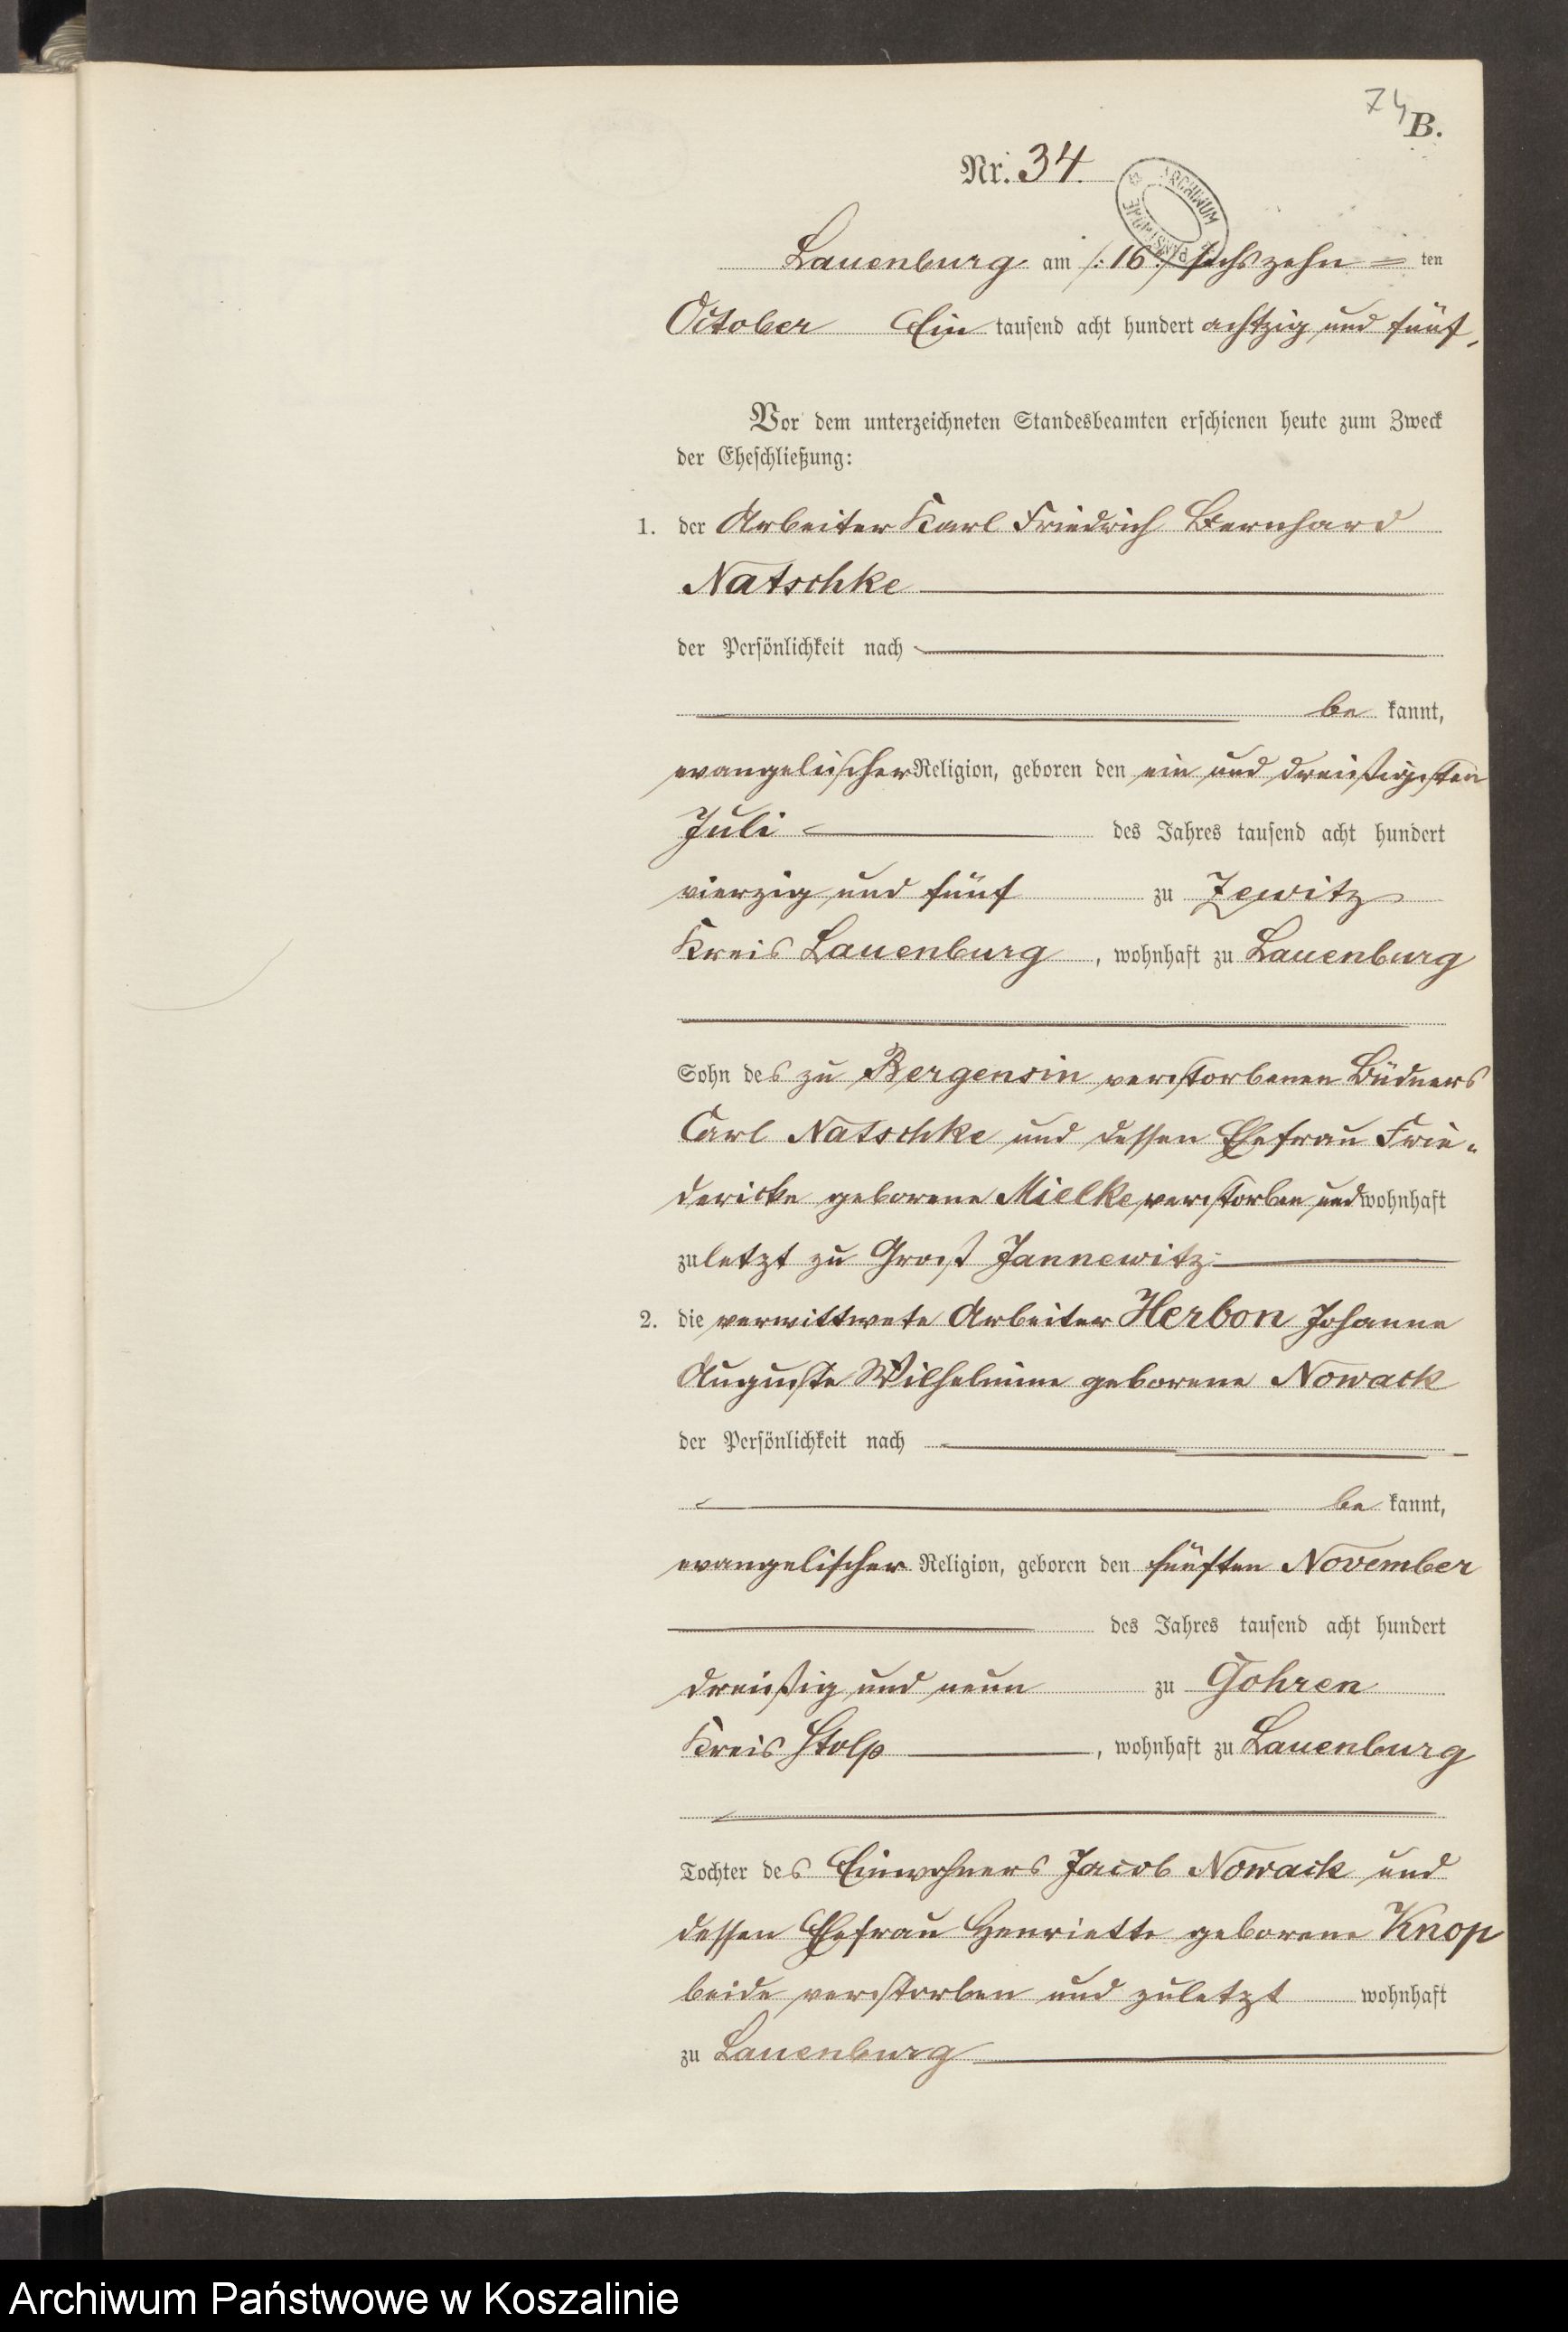 74
B.
Nr. 34.
ARCHIWUM
Lauenburg am /: 16 :/ sechszehn = ten
October Ein tausend acht hundert achtzig und fünf.
Vor dem unterzeichneten Standesbeamten erschienen heute zum Zweck
der Eheschließung:
1. der Arbeiter Karl Friedrich Bernhard
Natschke
der Persönlichkeit nach
be kannt,
evangelischer Religion, geboren den ein und dreißigsten
Juli des Jahres tausend acht hundert
vierzig und fünf zu Zewitz
Kreis Lauenburg, wohnhaft zu Lauenburg
Sohn des zu Bergensin verstorbenen Büdners
Carl Natschke und dessen Ehefrau Frie-
dericke geborene Mielke verstorben und wohnhaft
zuletzt zu Groß Jannewitz
2. die verwittwete Arbeiter Herbon Johanne
Auguste Wilhelmine geborene Nowack
der Persönlichkeit nach
be kannt,
evangelischer Religion, geboren den fünften November
des Jahres tausend acht hundert
dreißig und neun zu Gohren
Kreis Stolp, wohnhaft zu Lauenburg
Tochter des Einwohners Jacob Nowack und
dessen Ehefrau Henriette geborene Knop
beide verstorben und zuletzt wohnhaft
zu Lauenburg
Archiwum Państwowe w Koszalinie